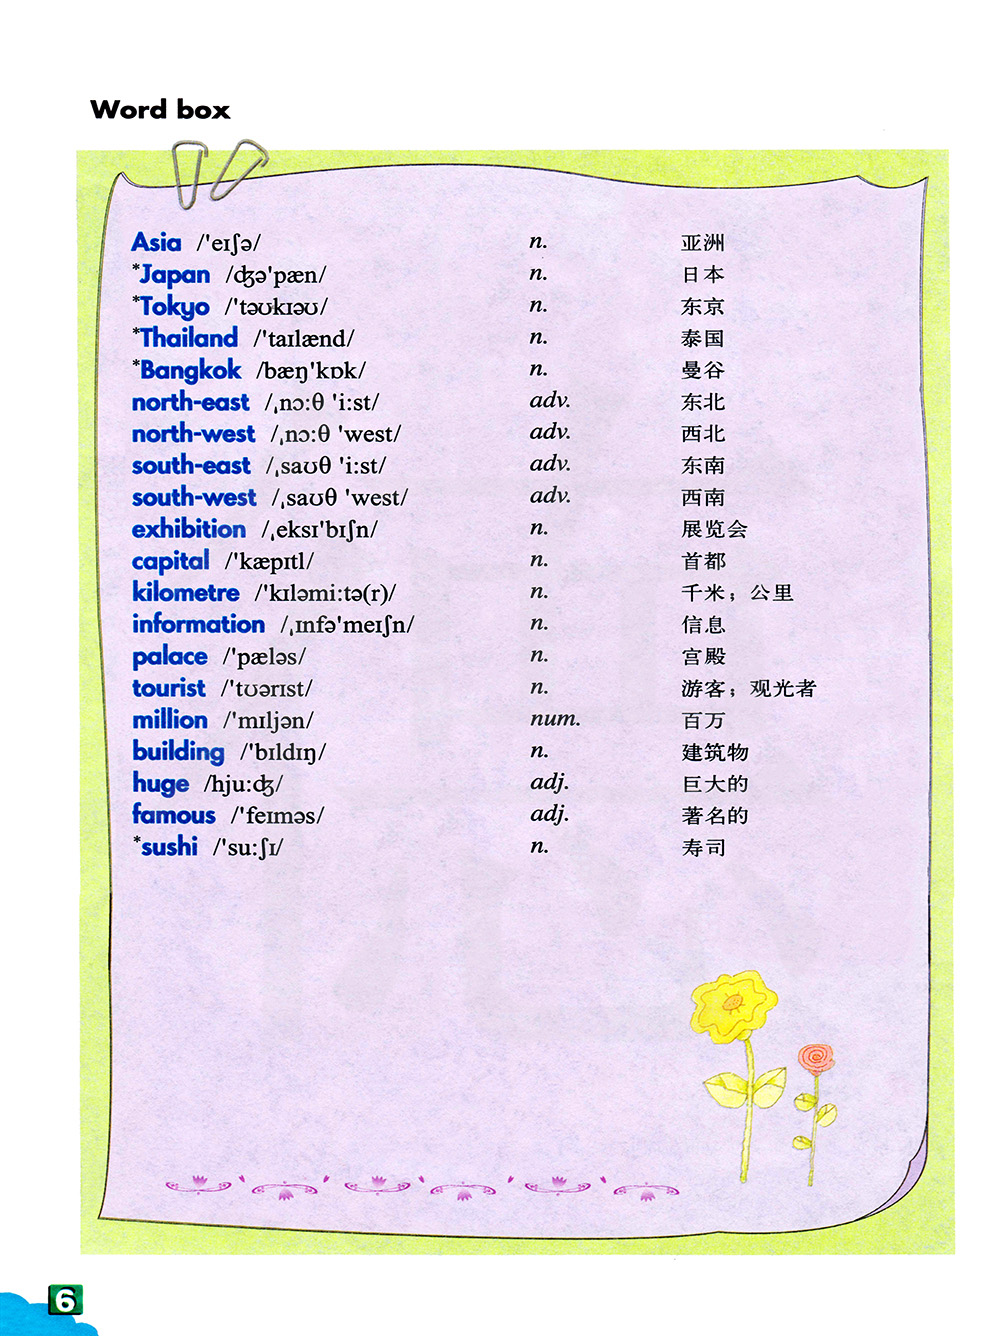 Word box
Asia /'eɪʃə/ n. 亚洲
*Japan /ʤə'pæn/ n. 日本
*Tokyo /'təʊkɪəʊ/ n. 东京
*Thailand /'taɪlænd/ n. 泰国
*Bangkok /bæŋ'kɒk/ n. 曼谷
north-east /ˌnɔ:θ 'i:st/ adv. 东北
north-west /ˌnɔ:θ 'west/ adv. 西北
south-east /ˌsaʊθ 'i:st/ adv. 东南
south-west /ˌsaʊθ 'west/ adv. 西南
exhibition /ˌeksɪ'bɪʃn/ n. 展览会
capital /'kæpɪtl/ n. 首都
kilometre /'kɪləmi:tə(r)/ n. 千米；公里
information /ˌɪnfə'meɪʃn/ n. 信息
palace /'pæləs/ n. 宫殿
tourist /'tʊərɪst/ n. 游客；观光者
million /'mɪljən/ num. 百万
building /'bɪldɪŋ/ n. 建筑物
huge /hju:ʤ/ adj. 巨大的
famous /'feɪməs/ adj. 著名的
*sushi /'su:ʃɪ/ n. 寿司
6